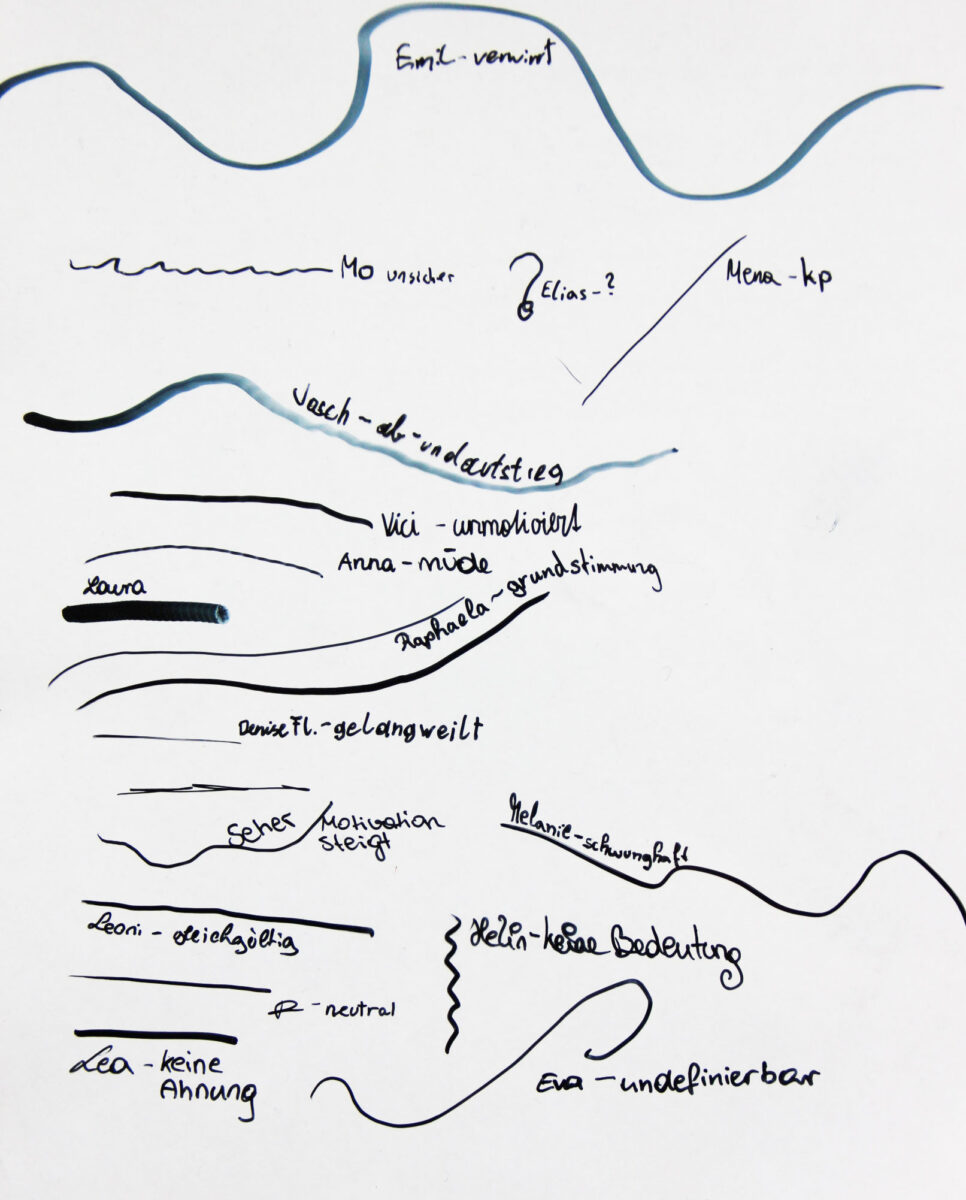 Emil - verwirrt
Mo unsicher
Elias - ?
Mena - kp
Vasch - ab - und aufstieg
Vici - unmotiviert
Anna - müde
Laura
Raphaela - grundstimmung
Denise Fl. - gelangweilt
Seher Motivation
steigt
Melanie - schwunghaft
Leoni - gleichgültig
Helin - keine Bedeutung
- neutral
Lea - keine
Ahnung
Eva - undefinierbar